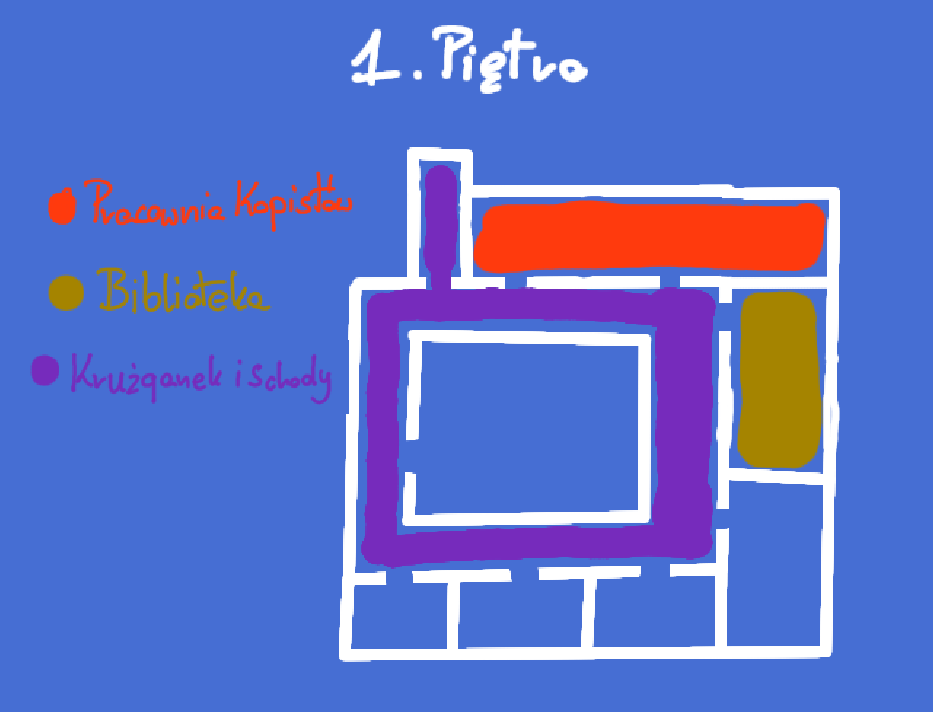 1. Piętro
Pracownia Kopistów
Biblioteka
Krużganek i schody